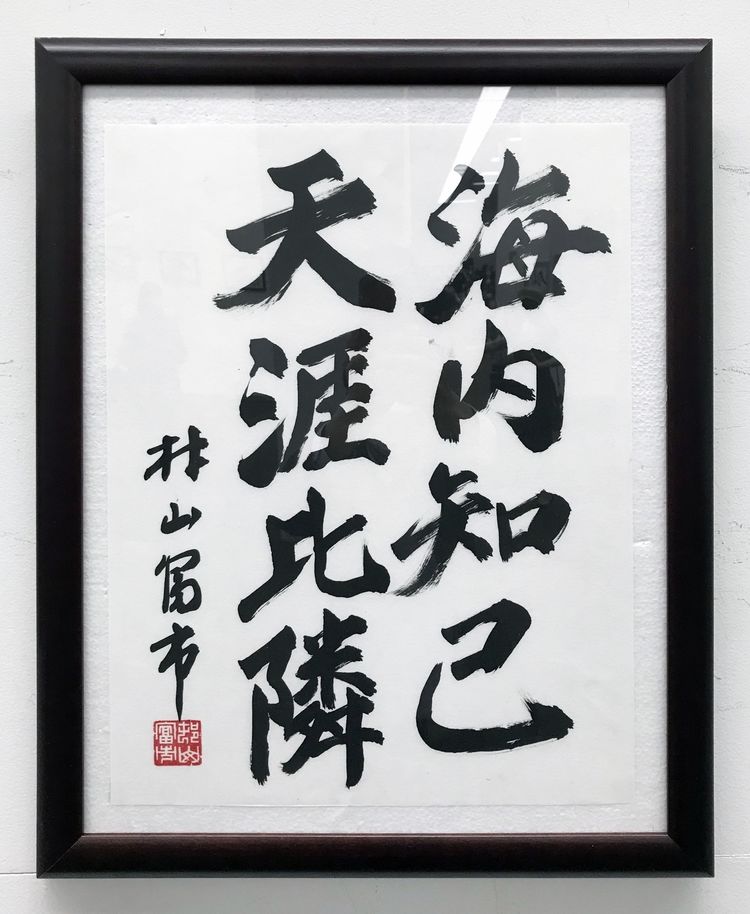 海内知己
天涯比隣
村山富市
邨山
富市